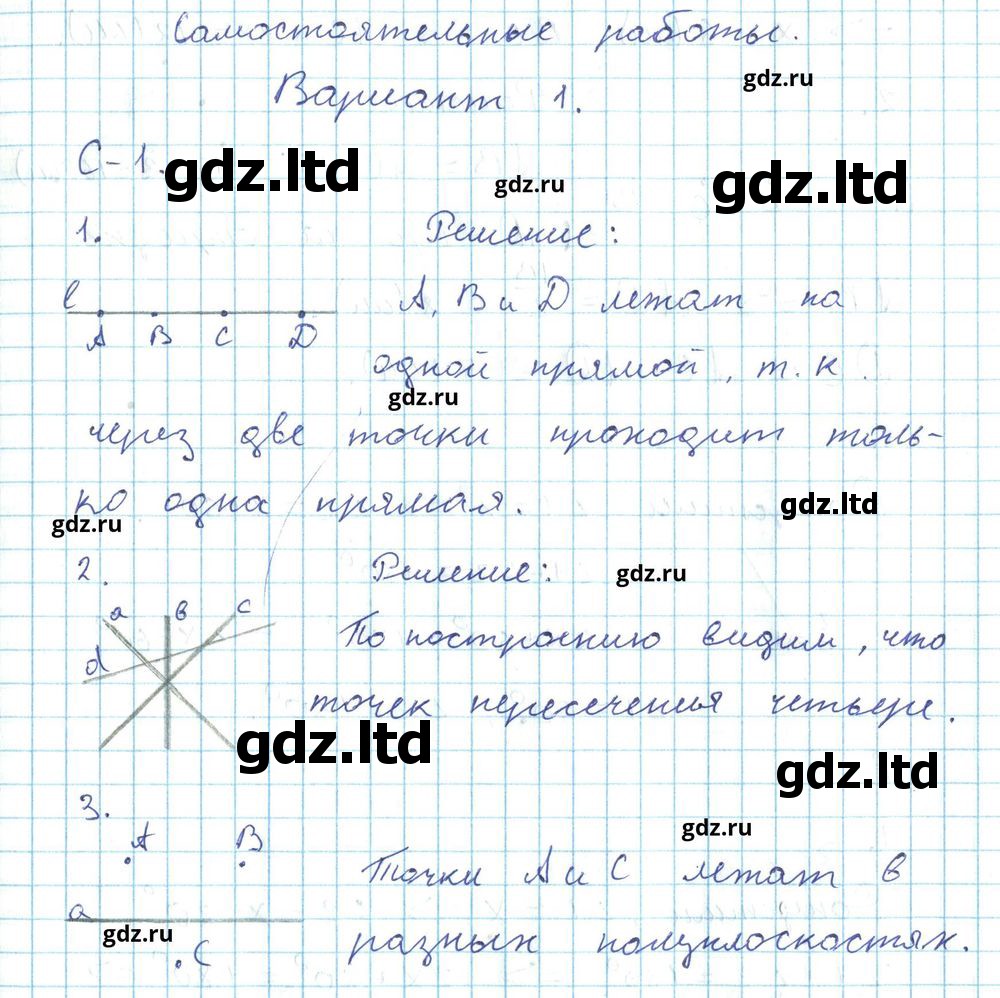 Самостоятельные работы.
gdz.ru
Вариант 1.
С-1.
gdz.ltd
gdz.ru
gdz.ltd
1. Решение:
l
А, В и D лежат на
A B C D
одной прямой, т.к.
gdz.ru
через две точки проходит толь-
ко одна прямая.
gdz.ltd
gdz.ru
2. Решение:
gdz.ru
a в c
d
По построению видим, что
точек пересечения четыре.
gdz.ltd
gdz.ltd
3.
gdz.ru
A B
Точки А и С лежат в
a
gdz.ru
разных полуплоскостях.
C